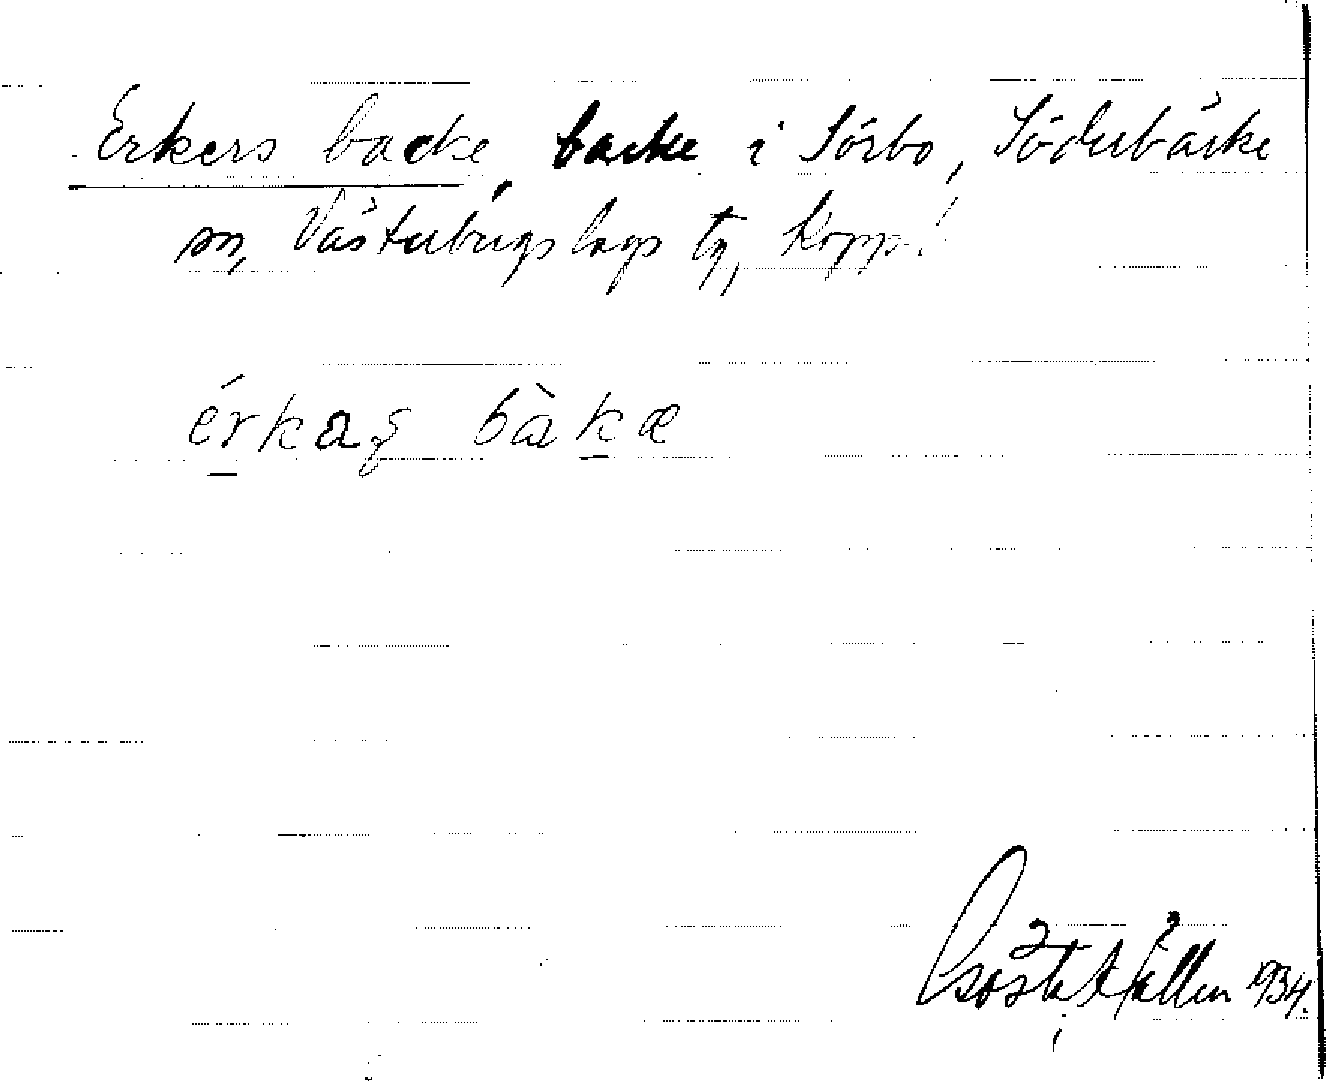 Erkers backe, backe i Sörbo, Söderbärke
sn, Västerbergslags tg, Kopp.l
érkaʂ bàkæ
Gösta Hållén 1934.